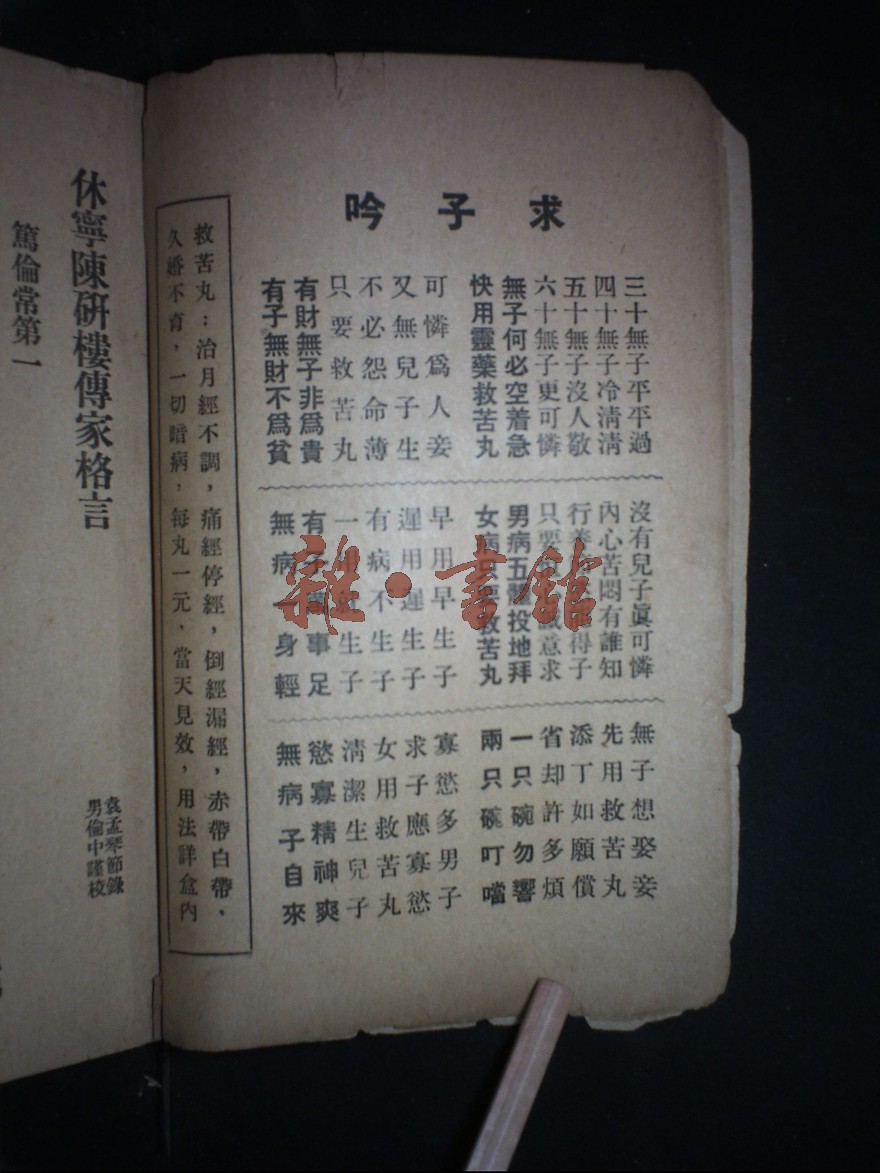 求子吟
三十無子平平過
四十無子冷淸淸
五十無子沒人敬
六十無子更可憐
無子何必空着急
快用靈藥救苦丸
可憐爲人妾
又無兒子生
不必怨命薄
只要救苦丸
有財無子非爲貴
有子無財不爲貧
沒有兒子眞可憐
內心苦悶有誰知
行善 得子
只要 意求
男病五體投地拜
女病只要救苦丸
早用早生子
遲用遲生子
有病不生子
一 生子
有子萬事足
無病一身輕
無子想娶妾
先用救苦丸
添丁如願償
省却許多煩
一只碗勿響
兩只碗叮噹
寡慾多男子
求子應寡慾
女用救苦丸
淸潔生兒子
慾寡精神爽
無病子自來
救苦丸：治月經不調，痛經停經，倒經漏經，赤帶白帶、
久婚不育，一切暗病，每丸一元，當天見效，用法詳盒內
休寧陳研樓傳家格言
袁孟琴節錄
男倫中謹校
篤倫常第一
雜·書館